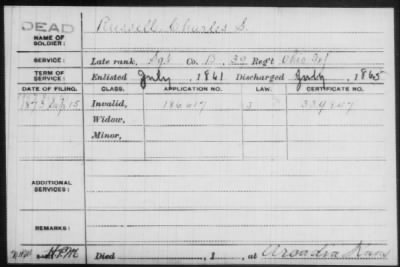 DEAD
NAME OF SOLDIER: Russell Charles S.
SERVICE: Late rank, Sgt Co. D. 39 Reg't Ohio Inf
TERM OF SERVICE: Enlisted July, 1861 Discharged July, 1865
DATE OF FILING. CLASS. APPLICATION NO. LAW. CERTIFICATE NO.
Invalid,
Widow,
Minor,
ADDITIONAL SERVICES:
REMARKS:
Died , 1 , at Arcadia Kans